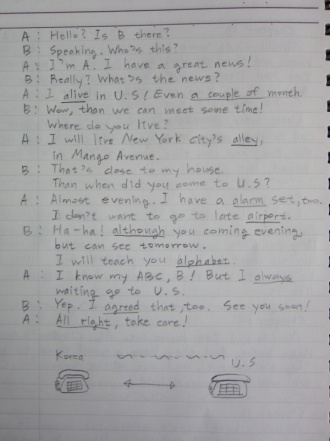 A: Hello? Is B there?
B: Speaking. Who's this?
A: I'm A. I have a great news!
B: Really? What's the news?
A: I alive in U.S! Even a couple of month.
B: Wow, than we can meet some time!
Where do you live?
A: I will live New York city's alley,
in Mango Avenue.
B: That's close to my house.
Than when did you come to U.S?
A: Almost evening. I have a alarm set, too.
I don't want to go to late airport.
B: Ha-ha! although you coming evening,
but can see tomorrow.
I will teach you alphabet.
A: I know my ABC, B! But I always
waiting go to U.S.
B: Yep. I agreed that, too. See you soon!
A: All right, take care!
Korea
U.S